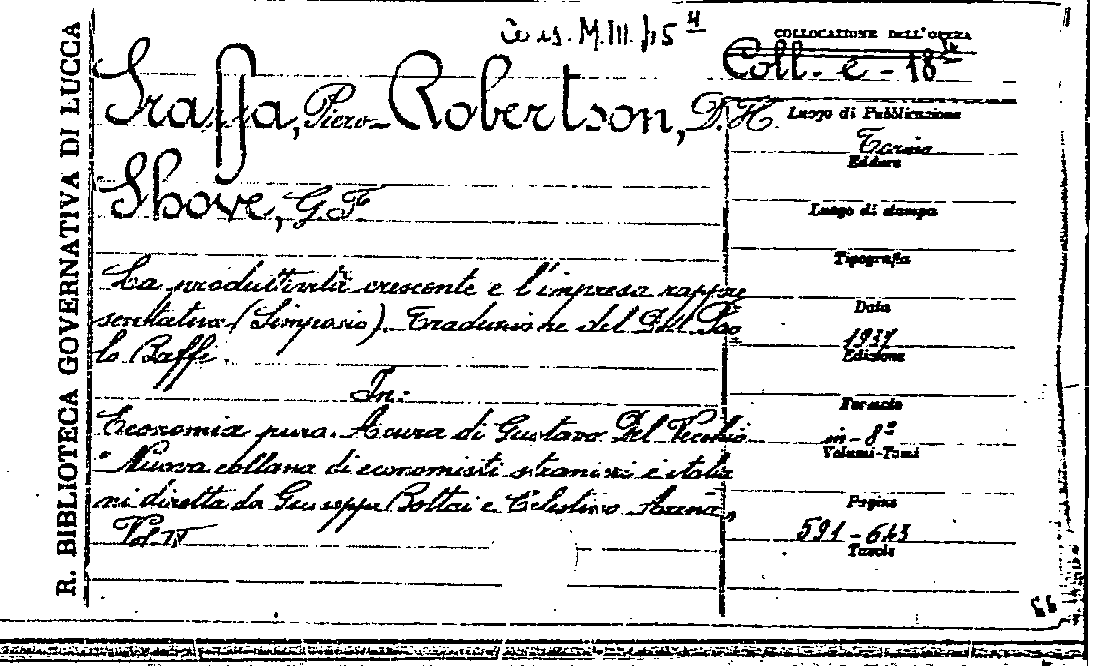 R. BIBLIOTECA GOVERNATIVA DI LUCCA
Cons. M.III.
COLLOCAZIONE DELL'OPERA
Coll. - e - 18
Sraffa, Piero - Robertson, D. H.
Shove, G F.
La produttività crescente e l'impresa rappre
sentativa (Simposio). Traduzione del Dott. Pao
lo Baffi.
In:
Economia pura. A cura di Gustavo Del Vecchio
"Nuova collana di economisti stranieri e italia
ni diretta da Giuseppe Bottai e Celestino Arena,,
Vol. IV
Luogo di Pubblicazione
Torino
Editore
Luogo di stampa
Tipografia
Data
1937
Edizione
Formato
in-8°
Volumi-Tomi
Pagine
591-643
Tavole